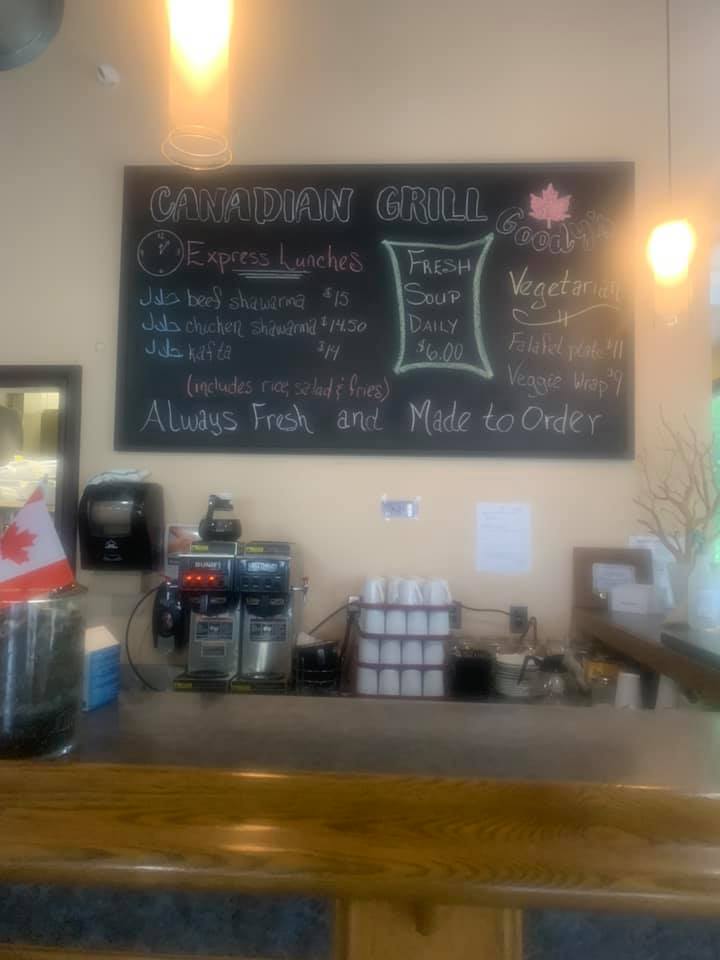 CANADIAN GRILL
Goody's
Express Lunches
حلال beef shawarma $15
حلال chicken shawarma $14.50
حلال kafta $14
(includes rice, salad & fries)
FRESH
SOUP
DAILY
$6.00
Vegetarian
Falafel plate $11
Veggie Wrap $9
Always Fresh and Made to Order
BUNN